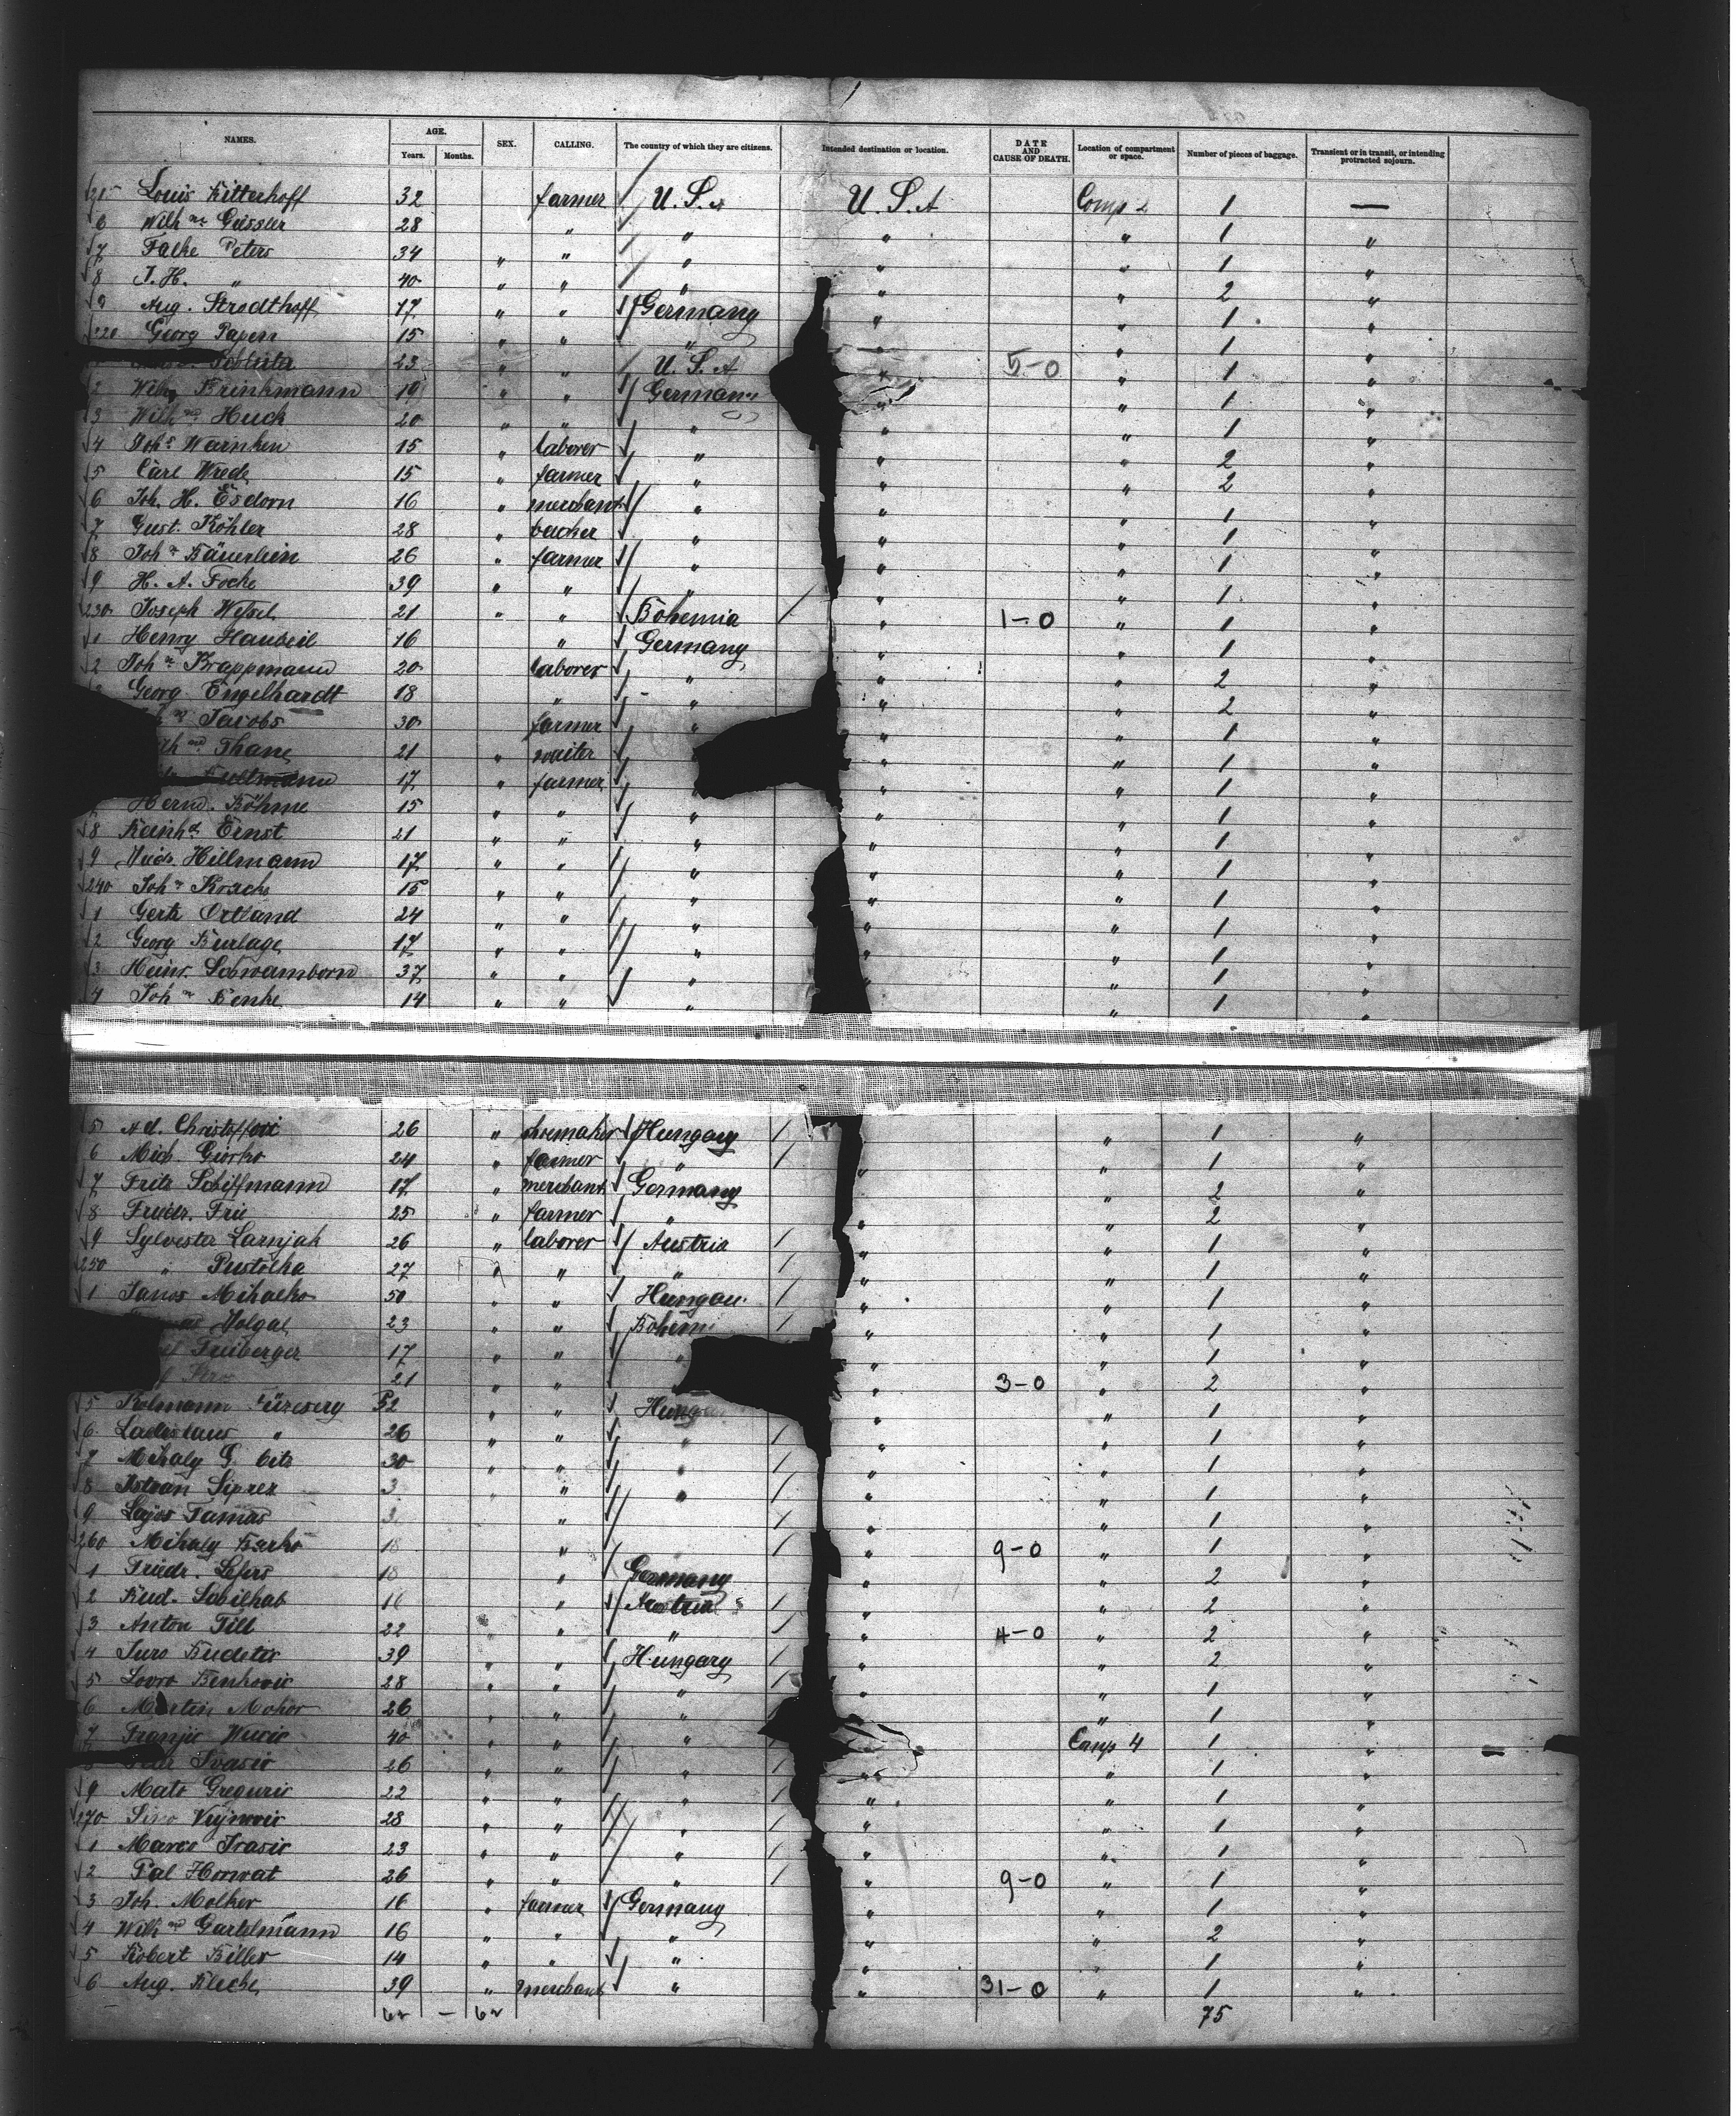 NAMES. AGE. Years. Months. SEX. CALLING. The country of which they are citizens. Intended destination or location. DATE AND CAUSE OF DEATH. Location of compartment or space. Number of pieces of baggage. Transient or in transit, or intending protracted sojourn.
Louis Ritterhoff 32 farmer U.S.A U.S.A Comp 1 —
6 Wilh. Gässler 28 " " " " 1 "
7 Falke Peters 34 " " " " " 1 "
8 J. H. " 40 " " " " " 2 "
9 Aug. Strodthoff 17 " " Germany " " 1 "
220 Georg Papen 15 " " " " " 1 "
23 " " U.S.A " 5-0 " 1 "
2 Brinkmann 19 " " German " " 1 "
3 Wilh. Huck 20 " " " " " 1 "
4 Joh. Warnken 15 " laborer " " " 2 "
5 Carl Wrede 15 " farmer " " " 2 "
6 Joh. H. Esdorn 16 " merchant " " " 1 "
7 Gust. Köhler 28 " " " " 1 "
8 Joh. Bäuerlein 26 " farmer " " " 1 "
9 H. A. Focke 39 " " " " " 1 "
230 Joseph Wessel 21 " " Bohemia " 1-0 " 1 "
1 Henry Haubeil 16 " Germany " " 1 "
2 Joh. Krappmann 20 laborer " " " 2 "
Georg Engelhardt 18 " " " " 2 "
Jacobs 30 farmer " " " 1 "
Thane 21 " waiter " " 1 "
17 " farmer " " " 1 "
Herm. Böhme 15 " " " " " 1 "
8 Reinhd. Ernst 21 " " " " " 1 "
9 Hillmann 17 " " " " " 1 "
240 Joh. Krack 15 " " " " " 1 "
1 Gertz Ortland 24 " " " " " 1 "
2 Georg Burlage 17 " " " " " 1 "
3 Heinr. Schwamborn 37 " " " " " 1 "
4 Joh. Benke 14 " " " " " 1 "
5 Ad. Christoffori 26 " shoemaker Hungary " 1 "
6 Mich. Giorko 24 " farmer " " " 1 "
7 Fritz Schiffmann 17 " merchant Germany " 2 "
8 Friedr. Frie 25 " farmer " " " 2 "
9 Sylvester Larnjak 26 " laborer Austria " " 1 "
250 " Pustolka 27 " " " " " 1 "
1 Janos Mihalko 50 " " Hungar " " 1 "
Holgal 23 " " Bohem " " 1 "
Freiberger 17 " " " " " 1 "
21 " " 3-0 " 2 "
5 Kolmann 32 " " Hunga " " 1 "
6 Ladislaus " 26 " " " " " 1 "
7 Mihaly 30 " " " " " 1 "
8 Istvan Siprez 3 " " " " " 1 "
9 Lajos Tamas 3 " " " 1 "
260 Mihaly Barko 18 " " 9-0 " 1 "
1 Friedr. 18 " Germany " " 2 "
2 Rud. Schilhab 16 " Austria " " 2 "
3 Anton Till 22 " " " " 4-0 " 2 "
4 Juro Budetic 39 " " Hungary " " 2 "
5 Lovro Benkovic 28 " " " " " 1 "
6 Martin Mohor 26 " " " " 1 "
7 Franjic 40 " " " Comp 4 1 "
Ivasic 26 " " " " " 1 "
9 Mato Greguric 22 " " " " " 1 "
270 28 " " " " " 1 "
1 Marco Ivasic 23 " " " " " 1 "
2 Pal Horwat 26 " " " " 9-0 " 1 "
3 Joh. Molker 16 " farmer Germany " " 1 "
4 Wilh. Gartelmann 16 " " " " " 2 "
5 Robert Biller 14 " " " " 1 "
6 Aug. Bleche 39 " merchant " " 31-0 " 1 "
62 — 62 75